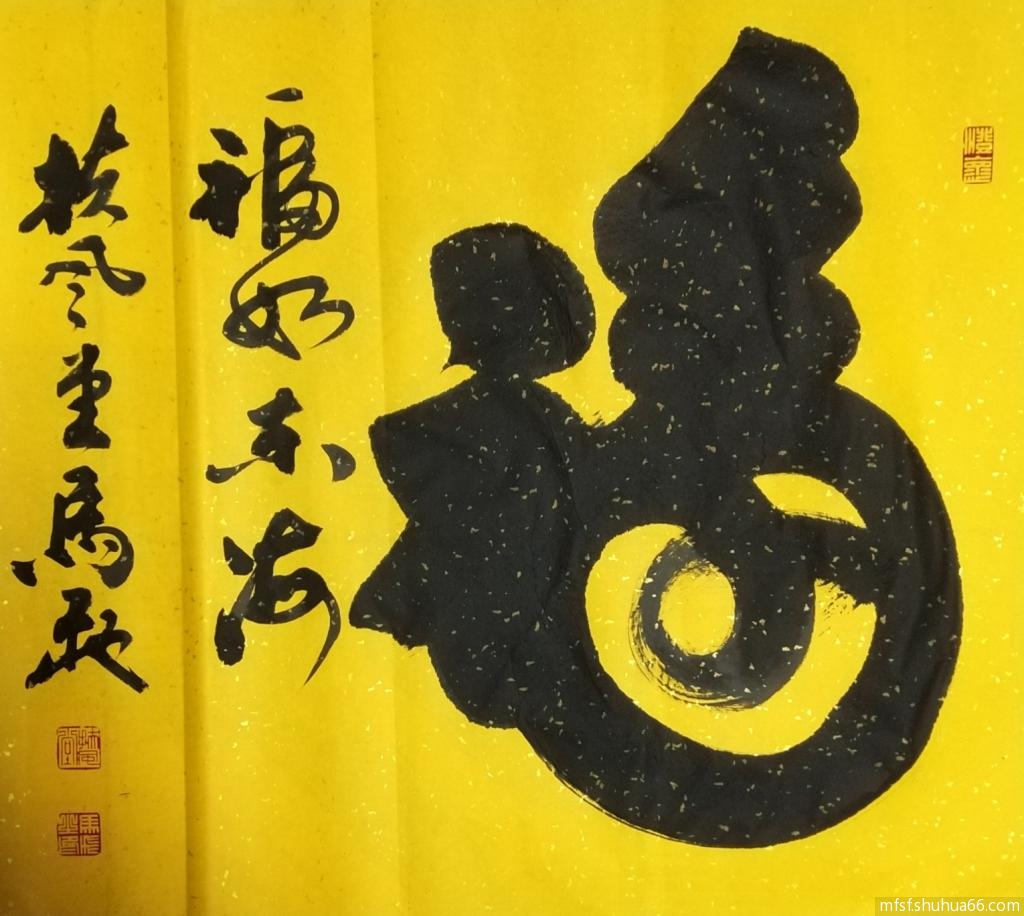 福
福如东海
扶风堂馬
mfsf.shuhua66.com